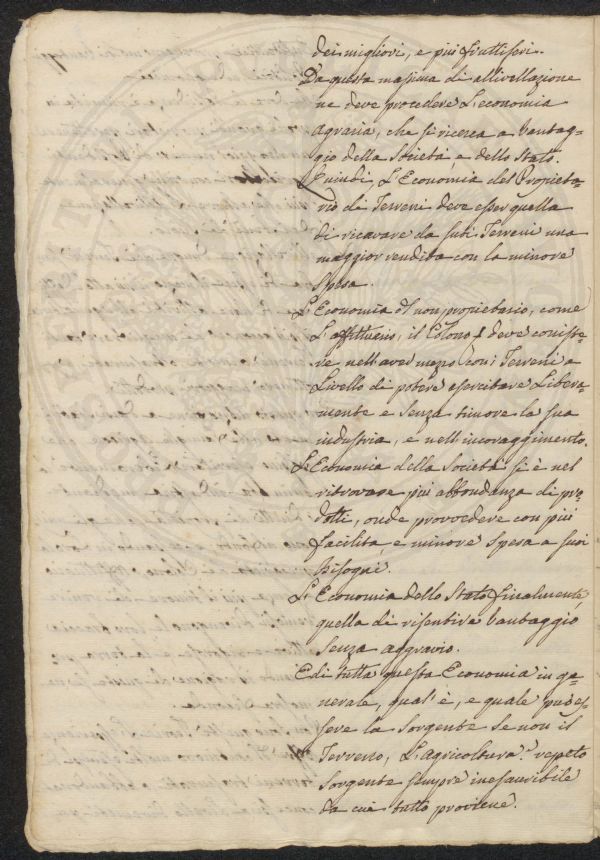 dei migliori, e più fruttiferi.
Da questa massima di allivellazione
ne deve procedere L'economia
agraria, che si ricerca a vantag=
gio della Società, e dello Stato.
Quindi, L'Economia del Propieta=
rio di Terreni deve esser quella
di ricavare da suoi Terreni una
maggior rendita con la minore
Spesa.
L'Economia del non propietario, come
L'affittuario, il Colono, deve consiste=
re nell'aver mezzo con i Terreni a
Livello di potere esercitare Libera=
mente e senza timore la sua
industria, e nell'incoraggimento.
L'Economia della Società si è nel
ritrovare più abbondanza di pro=
dotti, onde provvedere con più
facilità, e minore Spesa a suoi
bisogni.
L'Economia dello Stato finalmente,
quella di risentire vantaggio
senza aggravio.
E di tutta questa Economia in ge=
nerale, qual'è, e quale può es=
sere la sorgente se non il
Terreno, L'agricoltura? repeto
Sorgente sempre inesauribile
da cui tutto proviene.